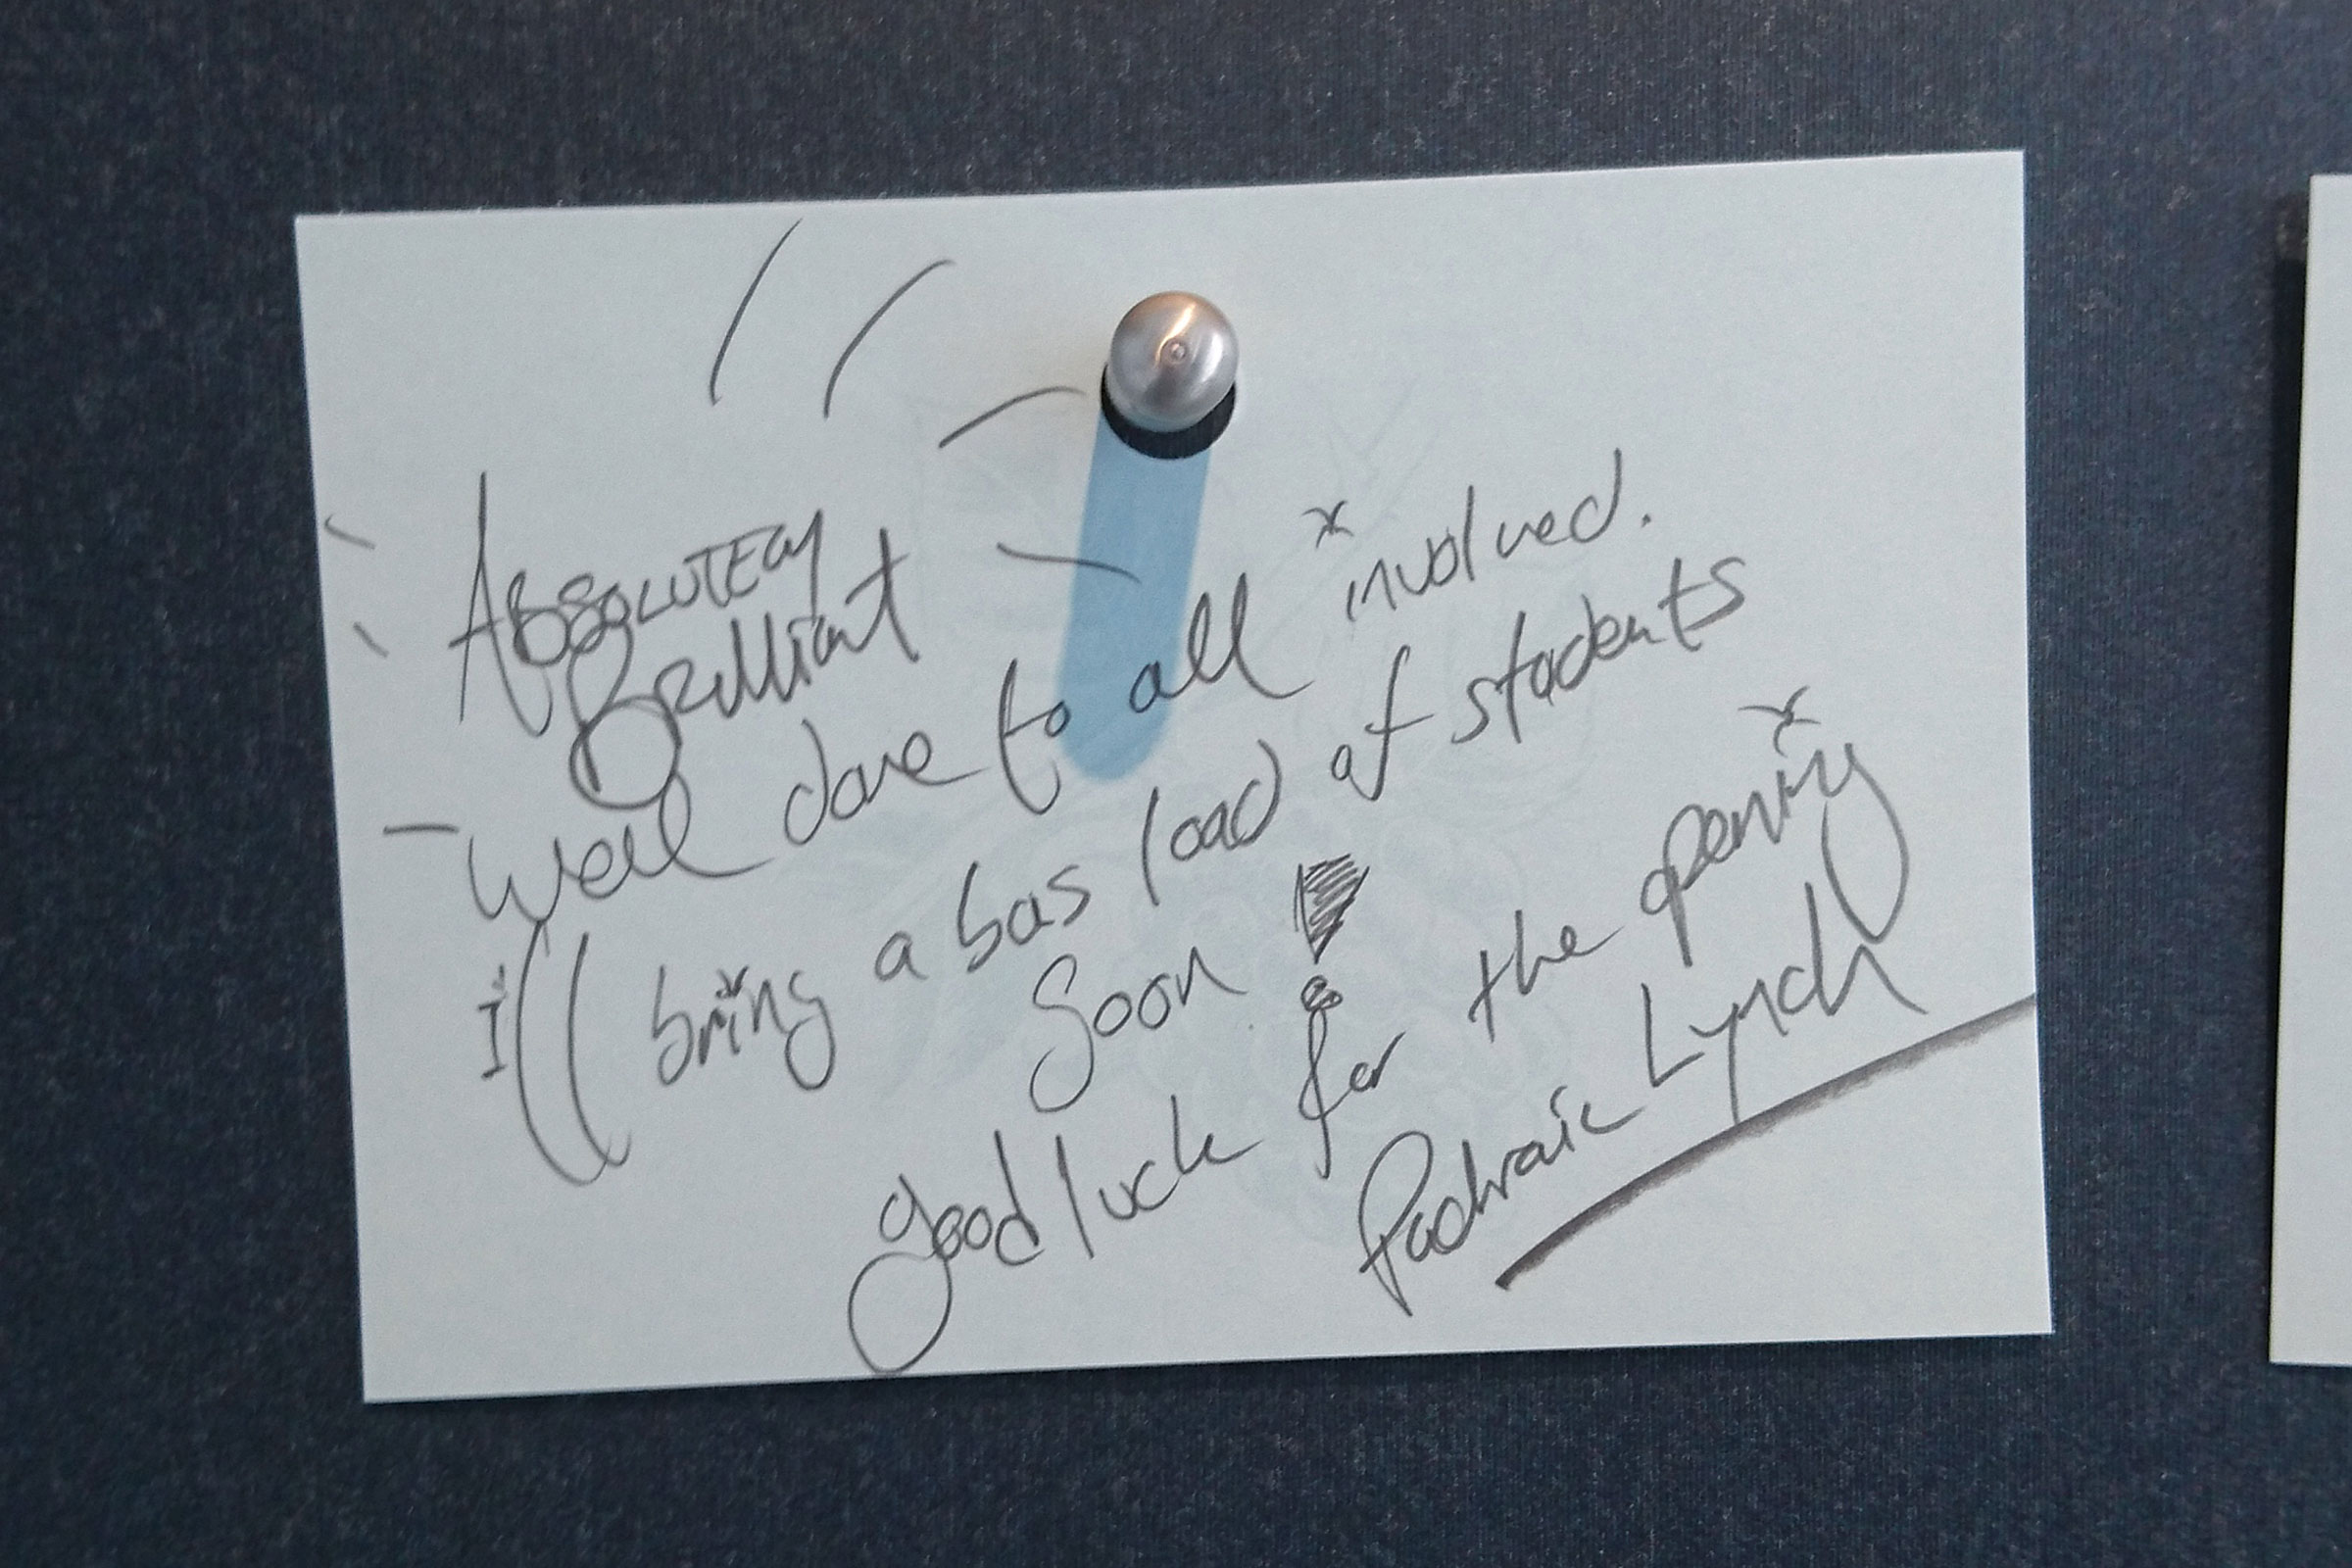 ABSOLUTELY
Brilliant
Well done to all involved.
I'll bring a bus load of students
Soon!
good luck for the opening
Padraic Lynch